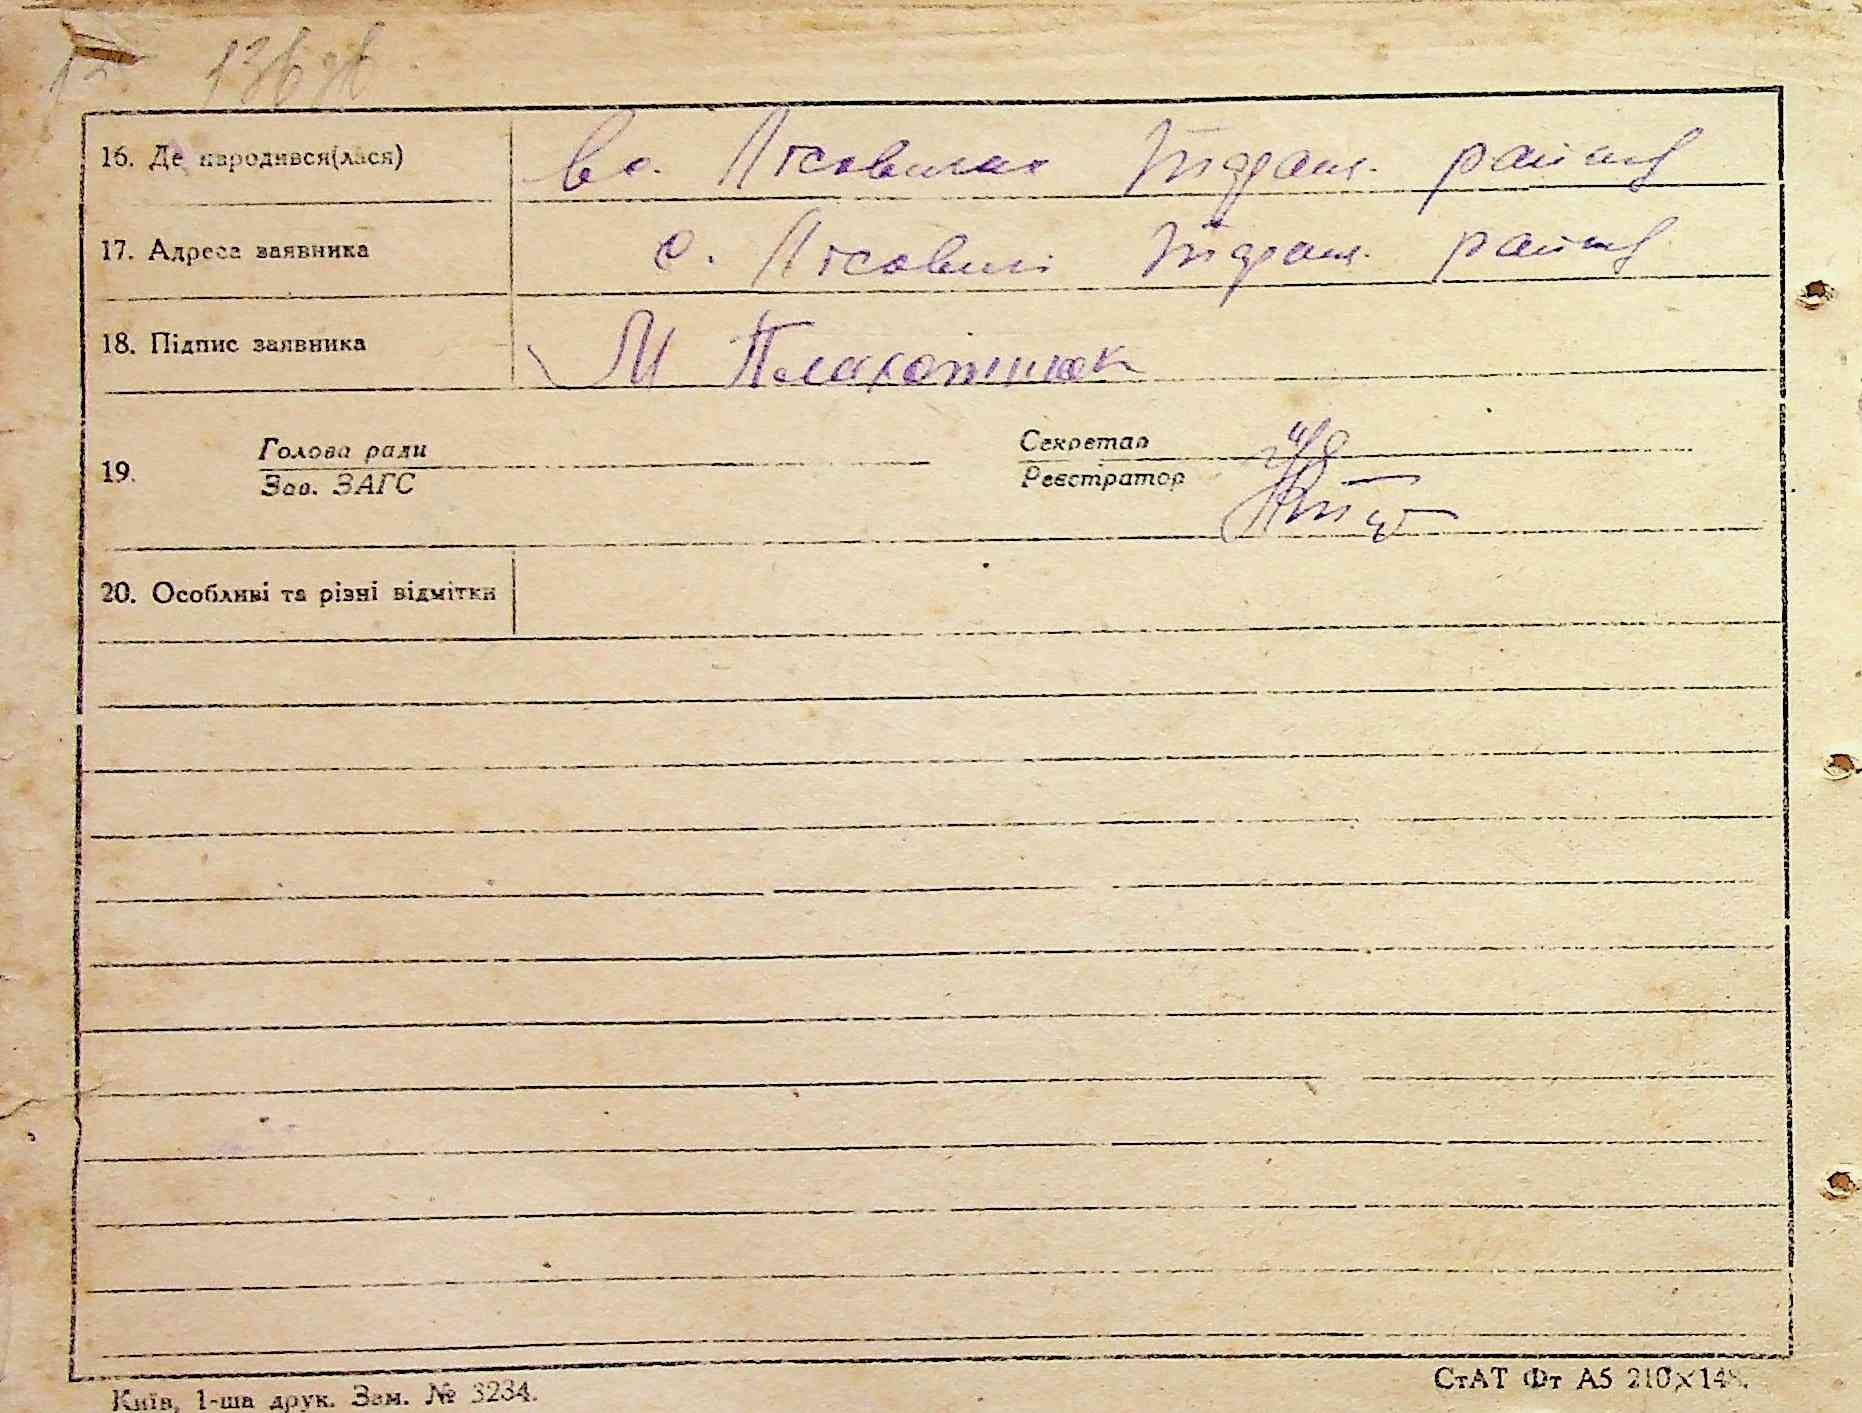 136
16. Де народився(лася) в с. Лісовичах Таращ. району
17. Адреса заявника с. Лісовичі Таращ. району
18. Підпис заявника М Плахотнюк
19. Голова ради Секретар
Зав. ЗАГС Реєстратор
20. Особливі та різні відмітки
Київ, 1-ша друк. Зам. № 3234.
СтАТ Фт А5 210×148.